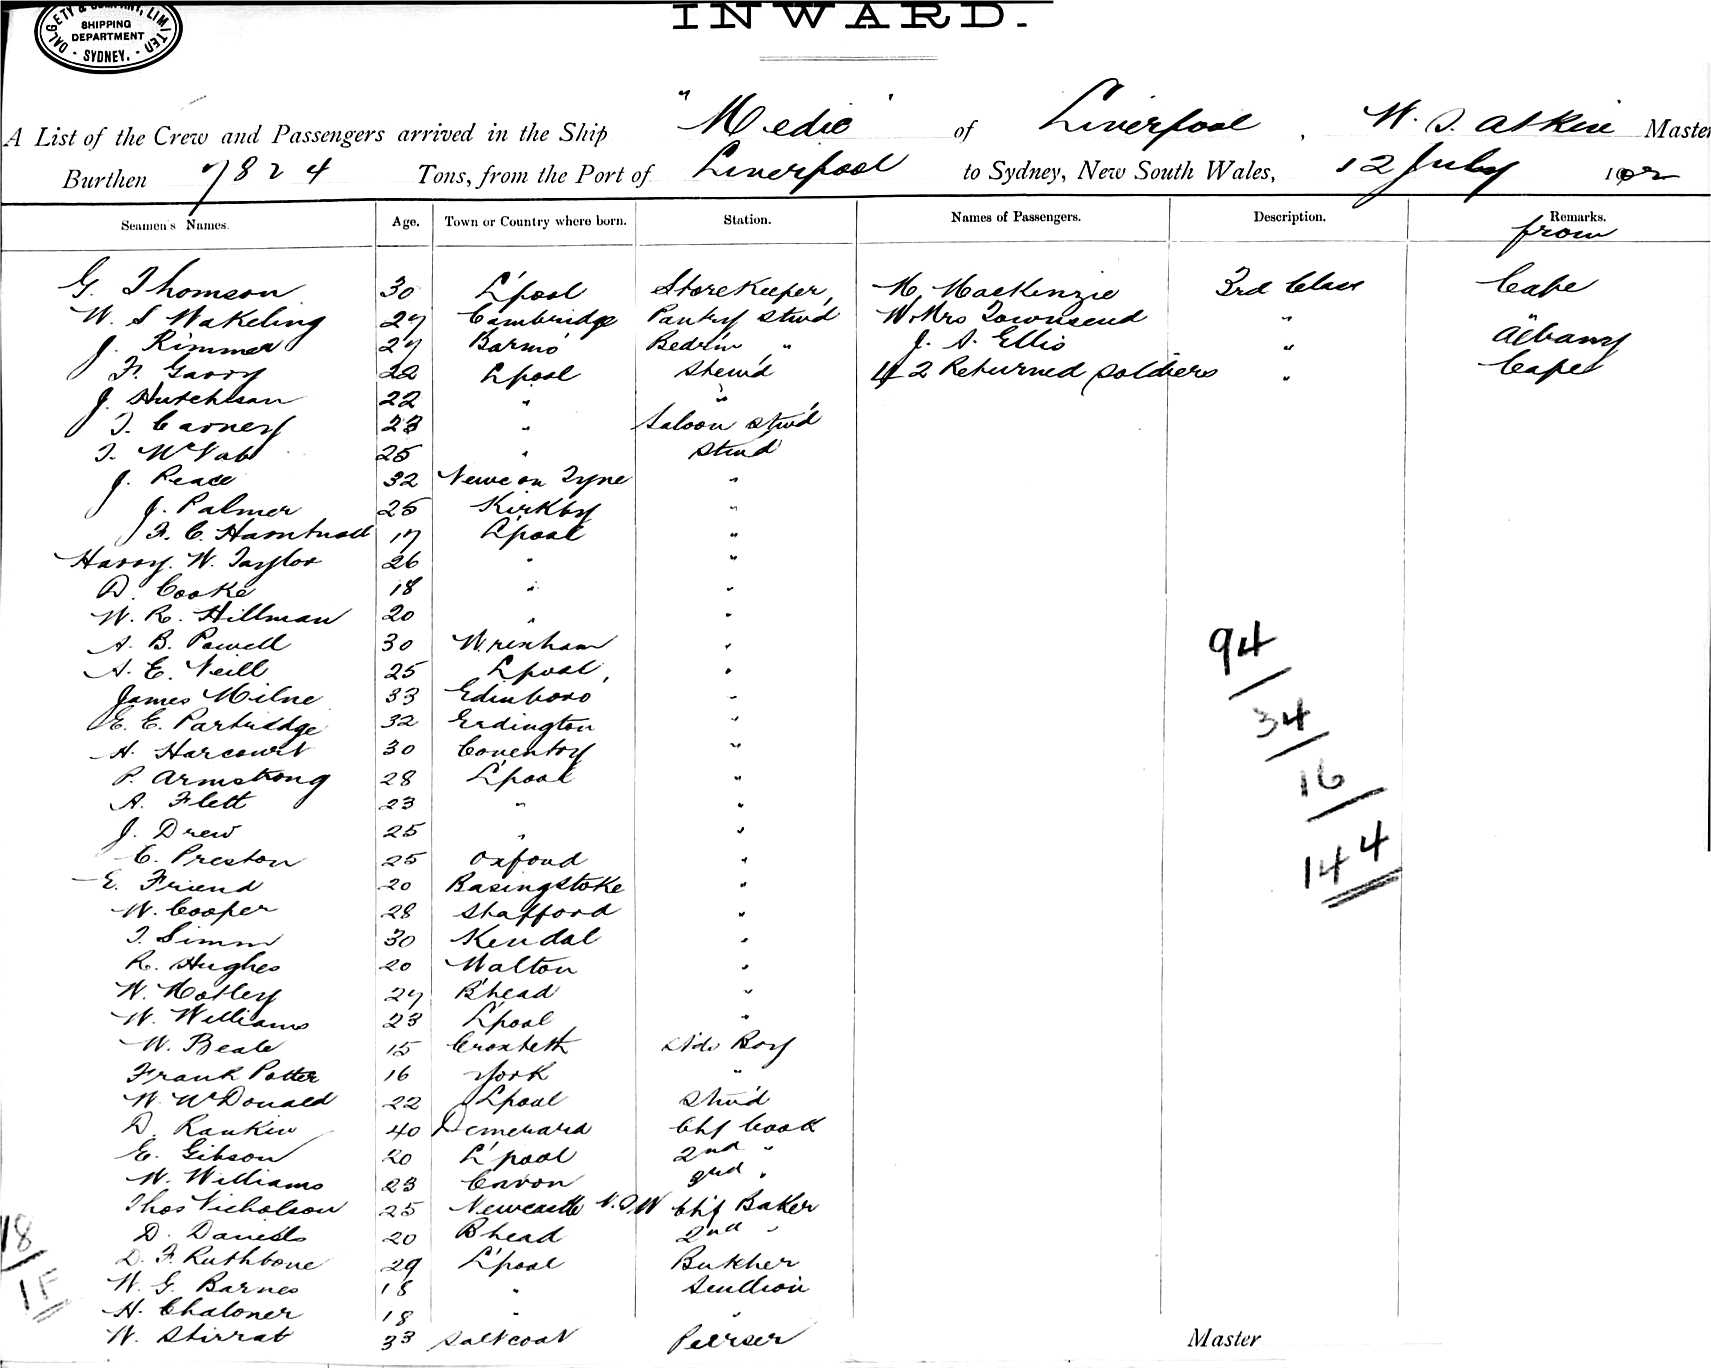 DALGETY & COMPANY, LIMITED
SHIPPING DEPARTMENT
SYDNEY.
INWARD.
A List of the Crew and Passengers arrived in the Ship "Medic" of Liverpool, W. J. Askin Master
Burthen 7824 Tons, from the Port of Liverpool to Sydney, New South Wales, 12 July 1902
Seamen's Names. Age. Town or Country where born. Station. Names of Passengers. Description. Remarks.
from
G. Thomson 30 L'pool Storekeeper M. MacKenzie 3rd Class Cape
W. S Wakeling 27 Cambridge Pantry Stwd W. Mrs Townsend "
J. Rimmer 27 Bedrm " J. A. Ellis " Albany
F. Garry 22 L'pool Stew'd 42 Returned Soldiers " Cape
J. Hutchison 22 " "
T. Carney 23 " Saloon Stwd
T. McNab 25 " Stwd
J. Peace 32 Newc on Tyne "
J. Palmer 25 Kirkby "
F. C. 17 L'pool "
Harry. W. Taylor 26 " "
D. Cooke 18 " "
W. R. Hillman 20 " "
A. B. Powell 30 Wrexham "
A. E. Neill 25 L'pool "
James Milne 33 Edinboro "
E. E. Partridge 32 Erdington "
A. Harcourt 30 Coventry "
P. Armstrong 28 L'pool "
A. Flett 23 " "
J. Drew 25 " "
C. Preston 25 Oxford "
E. Friend 20 Basingstoke "
W. Cooper 28 Stafford "
T. Simm 30 Kendal "
R. Hughes 20 Walton "
W. Motley 27 B'head "
W. Williams 23 L'pool "
W. Beale 15 Croxteth Boy
Frank Potter 16 York "
W. McDonald 22 L'pool Stwd
D. Rankin 40 Demerara Chf Cook
E. Gibson 20 L'pool 2nd "
W. Williams 23 3rd "
Thos Nicholson 25 Newcastle N.S.W Chf Baker
D. Daniels 20 Bhead 2nd "
D. F. Ruthbone 29 L'pool Butcher
W. G. Barnes 18 " Scullion
H. Chaloner 18 " "
W. Stirrat 33 Saltcoat Purser
94
34
16
144
18
Master